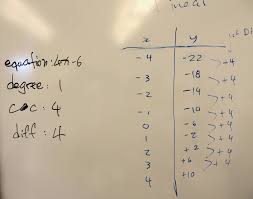 equation: 4x-6
degree: 1
C∝C: 4
diff: 4
x y 1st Di
-4 -22
+4
-3 -18
+4
-2 -14
+4
-1 -10
+4
0 -6
+4
1 -2
+4
2 +2
+4
3 +6
+4
4 +10